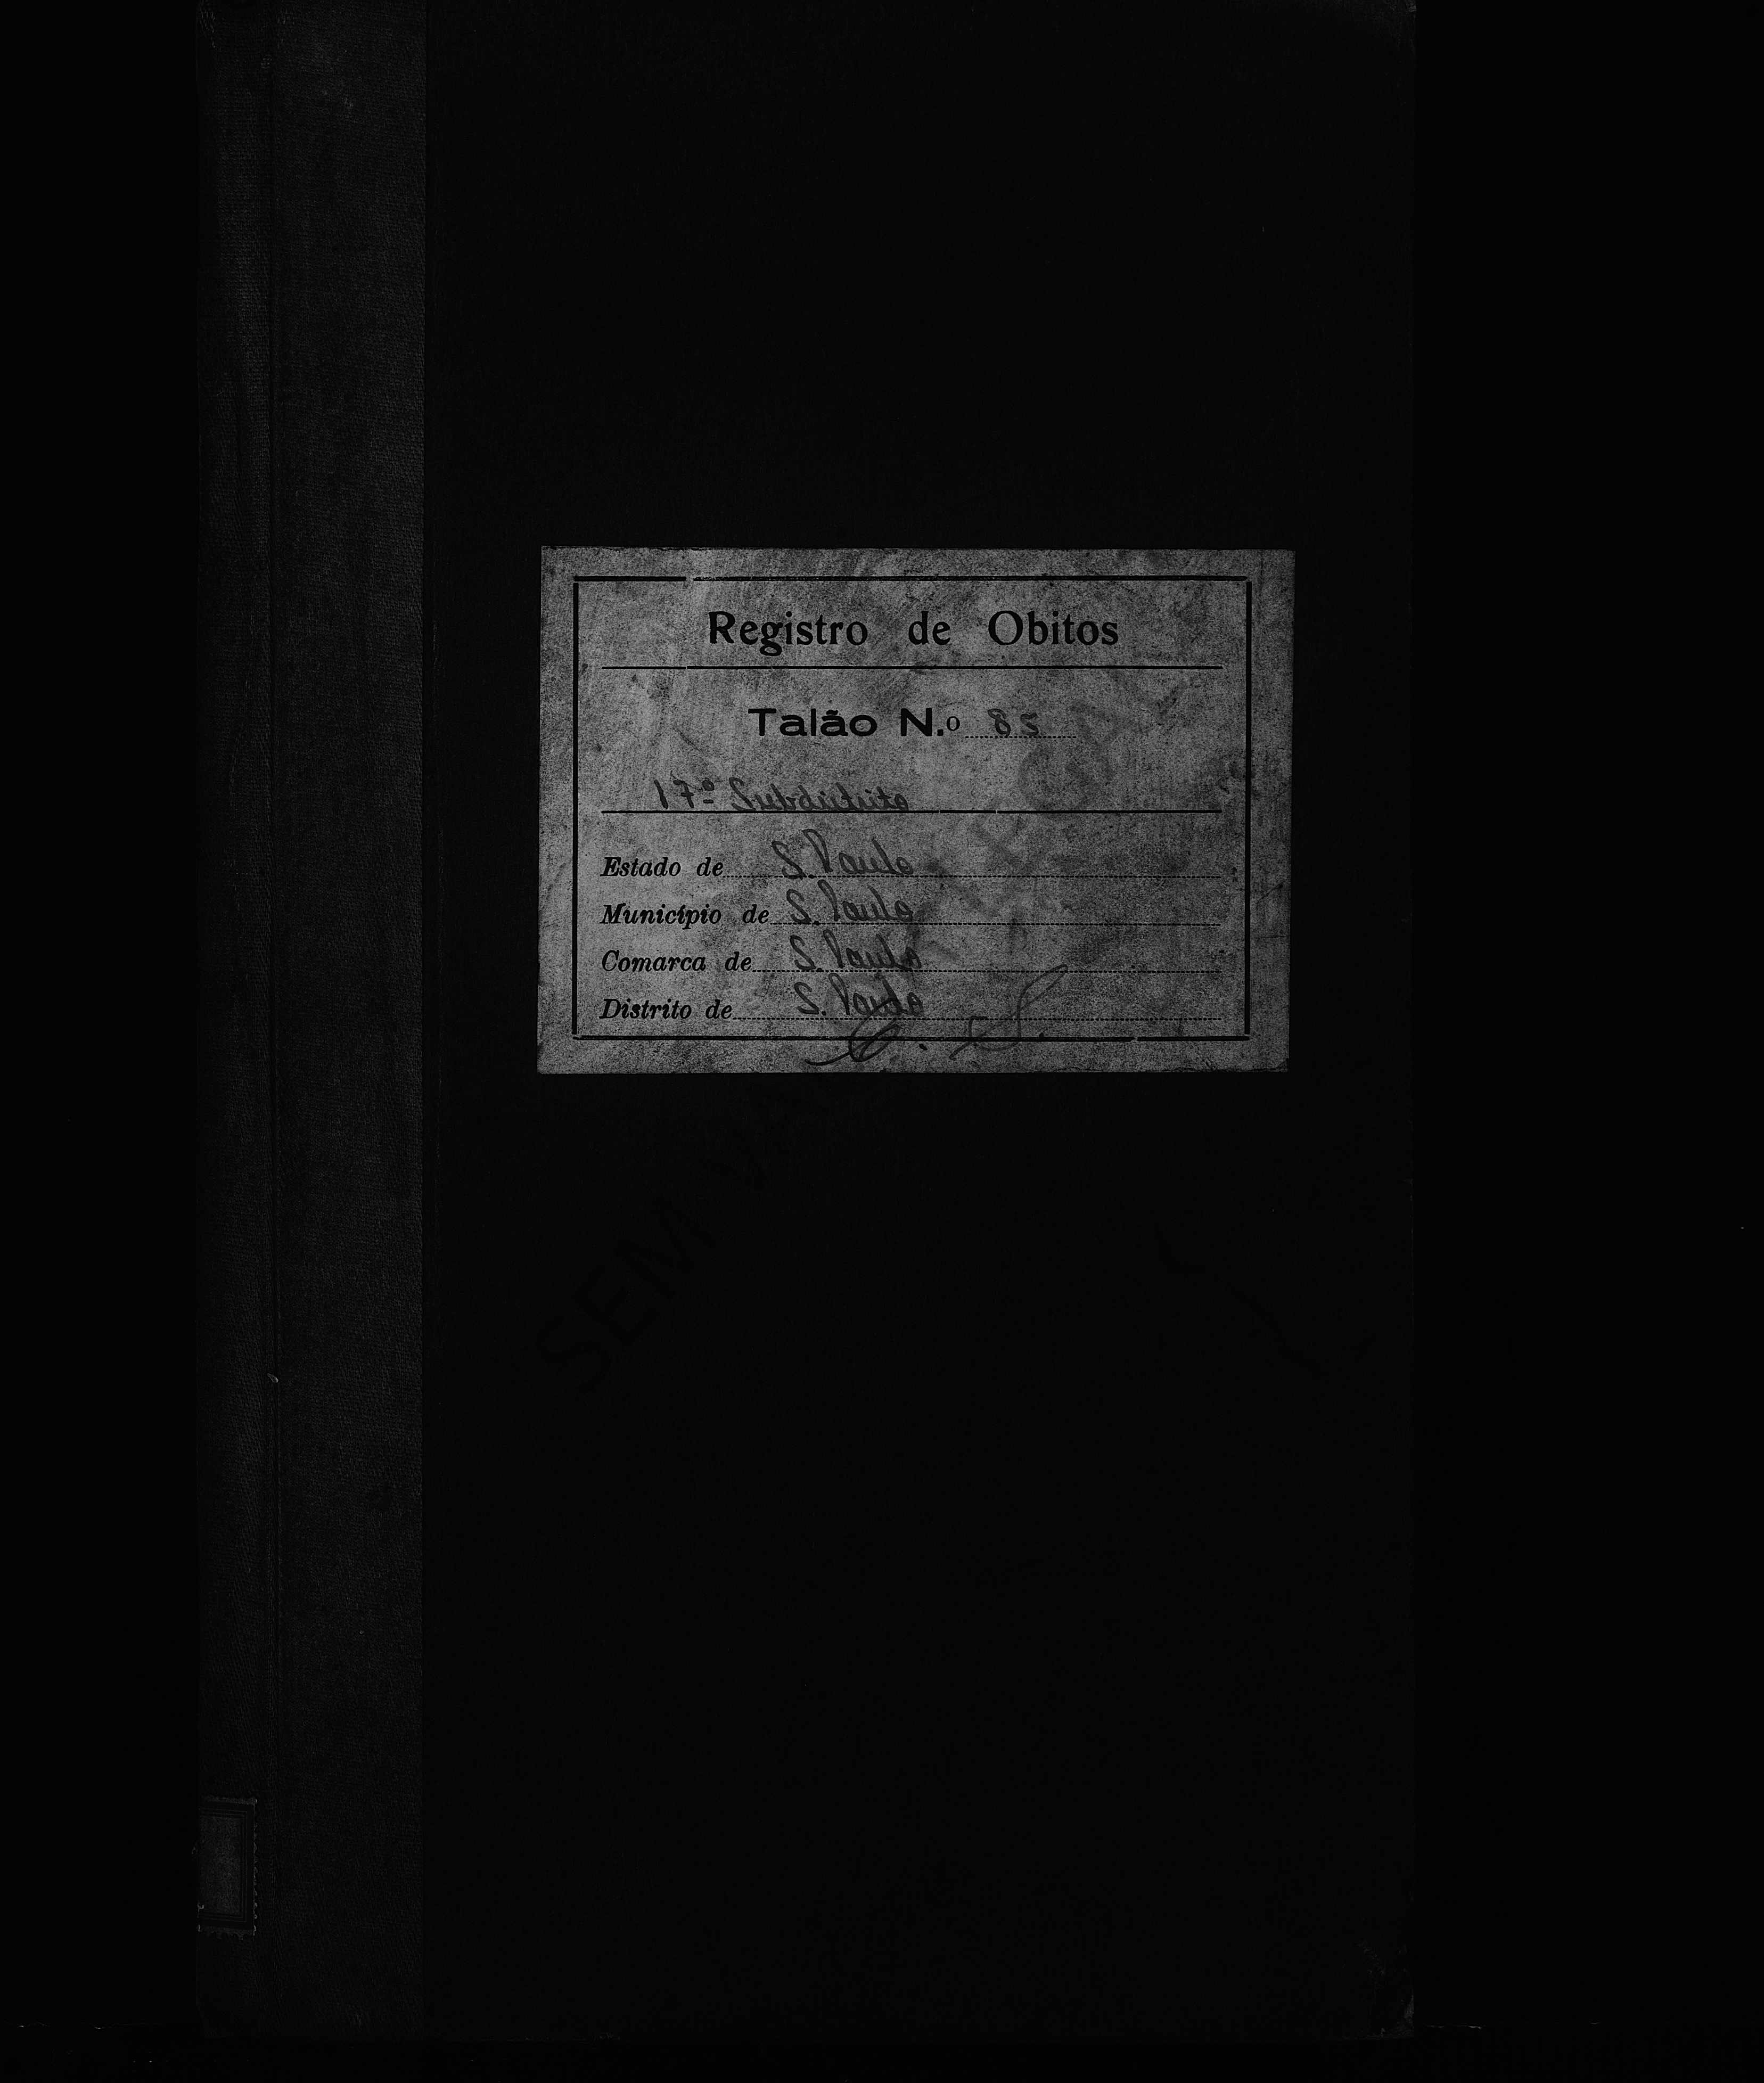 Registro de Obitos
Talão N.º 85
17º Subdistrito
Estado de S. Paulo
Município de S. Paulo
Comarca de S. Paulo
Distrito de S. Paulo
SEM